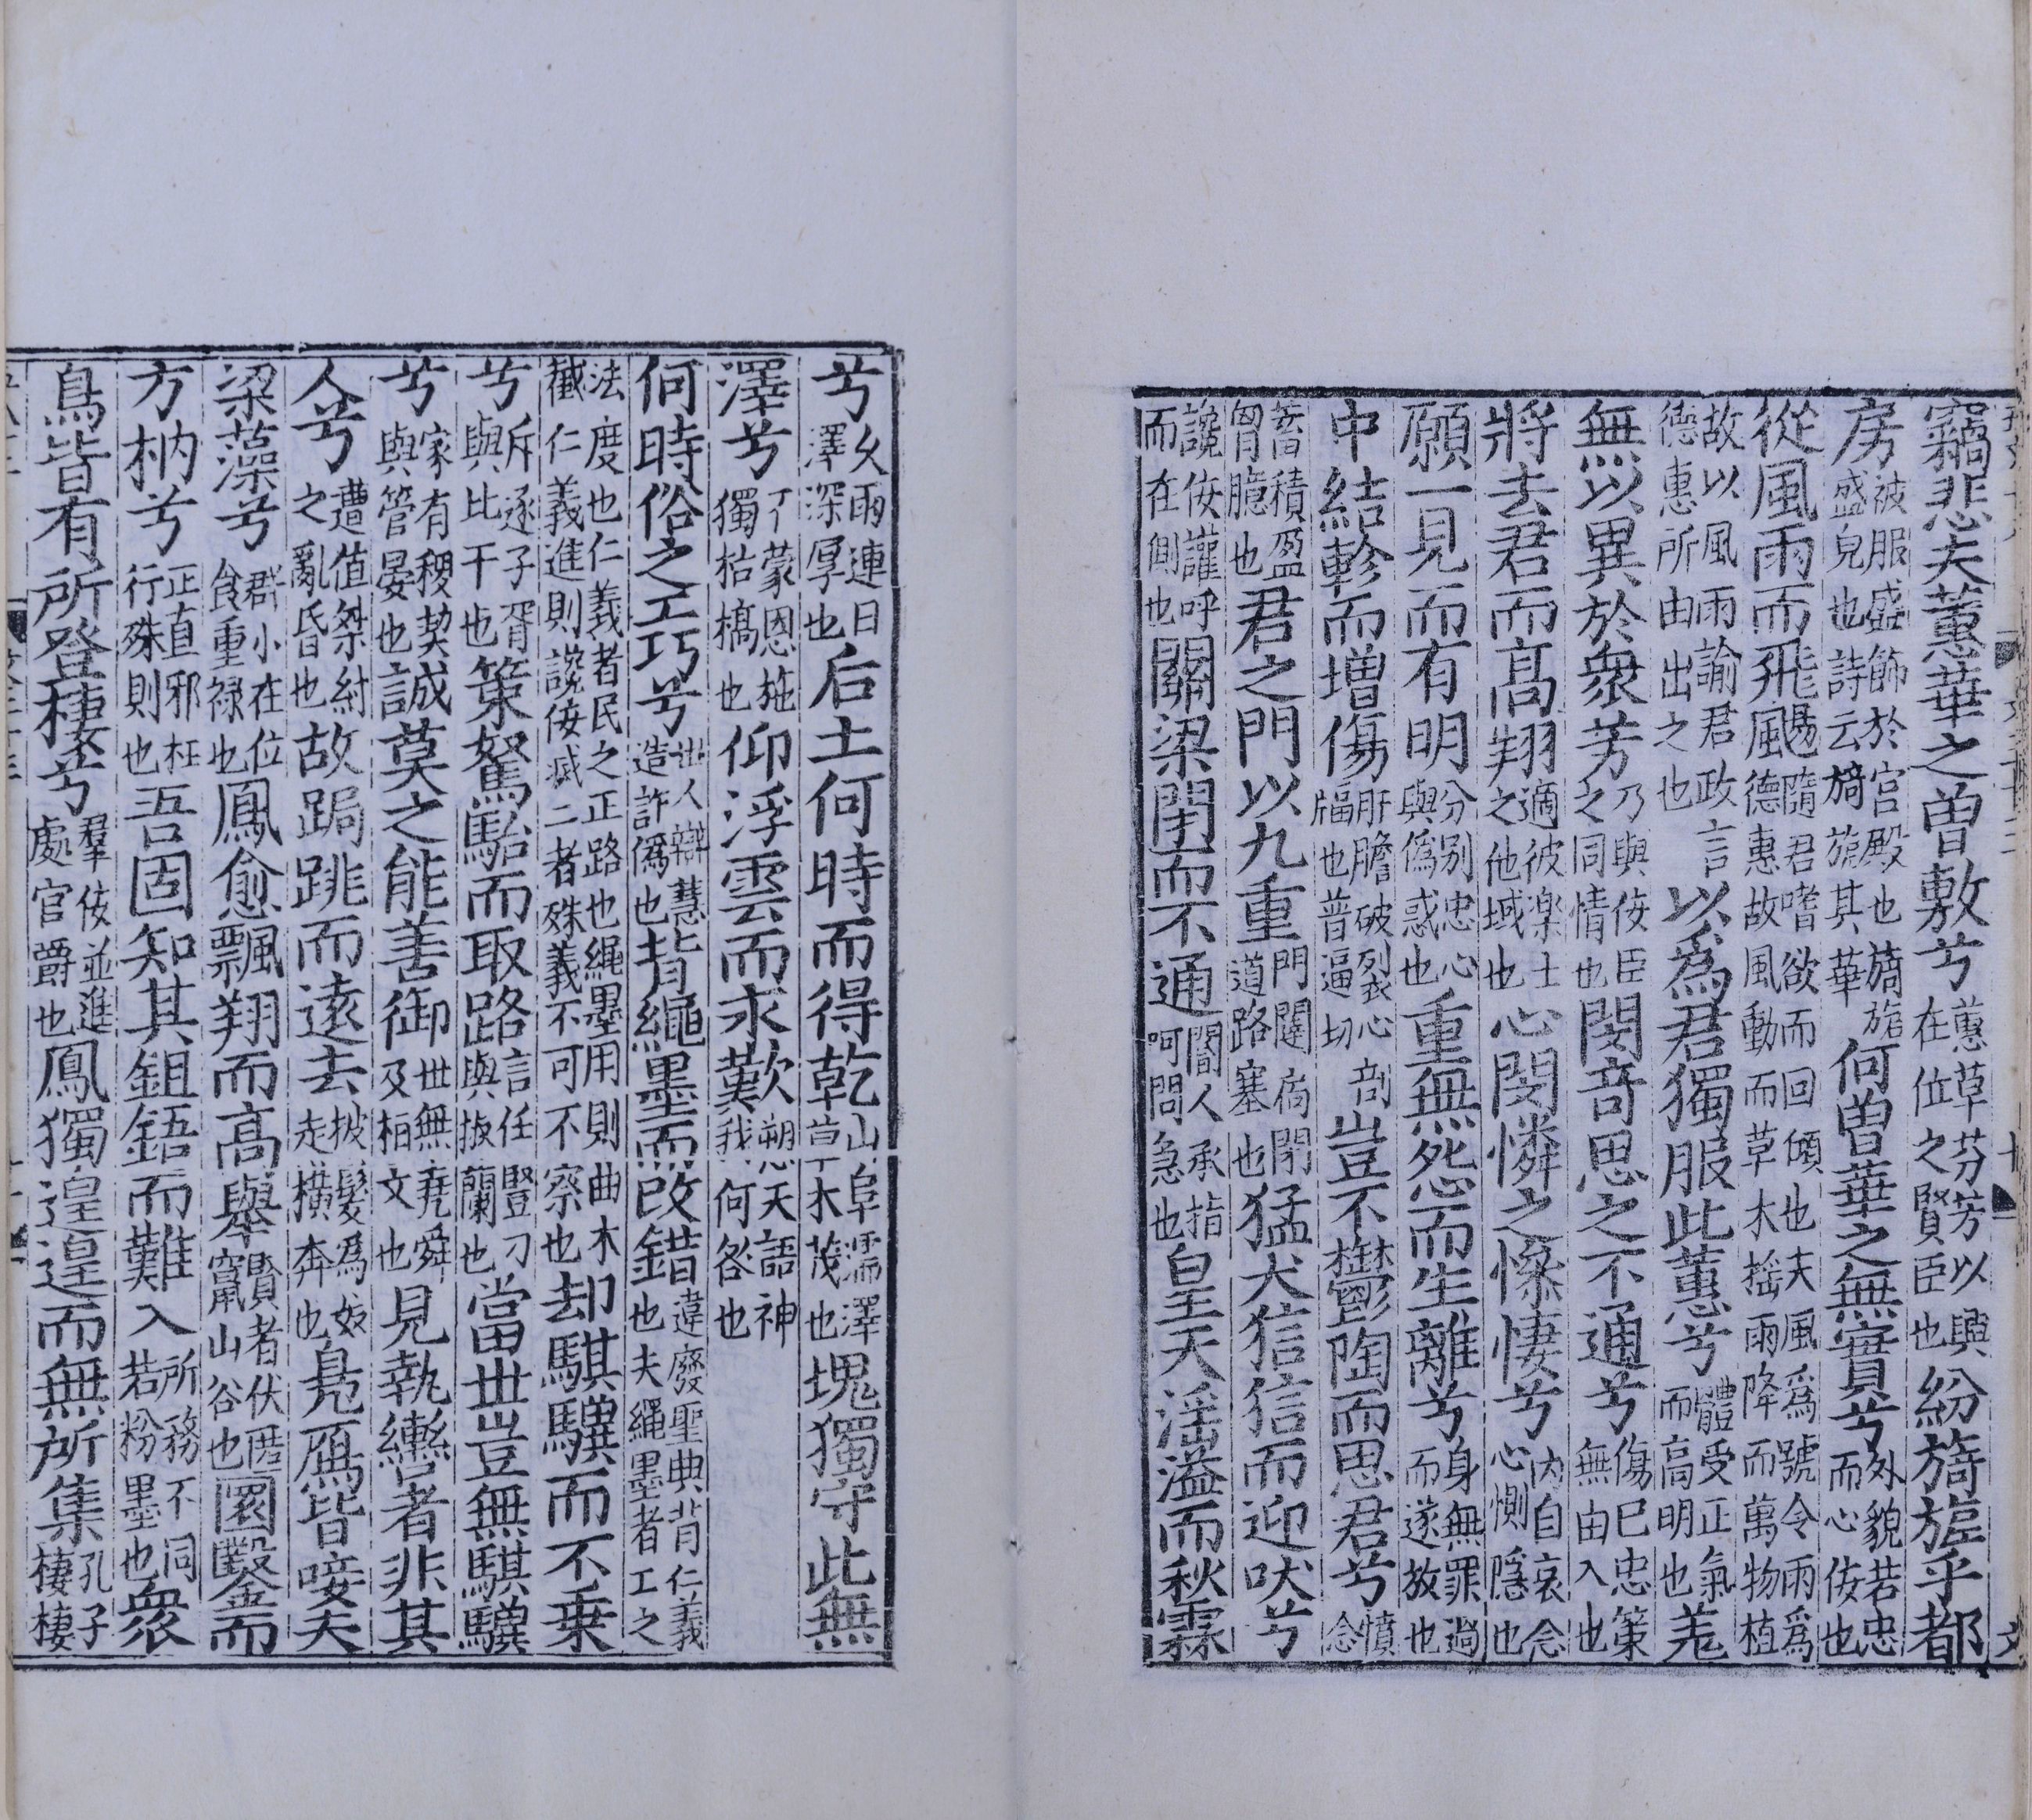 竊悲夫蕙華之曽敷兮蕙草芬芳以興在位之賢臣也紛旖旎乎都
房被服盛飾於宮殿也旖旎盛皃也詩云旖旎其華何曽華之無實兮外貌若忠而心佞也
從風雨而飛颺隨君嗜欲而回傾也夫風爲號令雨爲德惠故風動而草木揺雨降而萬物植
故以風雨諭君政言德惠所由出之也以爲君獨服此蕙兮體受正氣而高明也羌
無以異於衆芳乃與佞臣之同情也閔竒思之不通兮傷巳忠策無由入也
將去君而高翔適彼樂土之他域也心閔憐之慘悽兮内自哀念心惻隱也
願一見而有明分別忠心與僞惑也重無怨而生離兮身無罪過而遂放也
中結軫而增傷肝膽破裂心剖㽬也普逼切豈不鬱陶而思君兮憤念
蓄積盈胷臆也君之門以九重門闈扃閉道路塞也猛犬狺狺而迎吠兮
讒佞讙呼而在側也關梁閉而不通閽人承指呵問急也皇天淫溢而秋霖
兮久雨連日澤深厚也后土何時而得乾山阜濡澤草木茂也塊獨守此無
澤兮不蒙恩施獨枯槁也仰浮雲而永歎愬天語神我何咎也
何時俗之工巧兮世人辯慧造詐僞也背繩墨而改錯違廢聖典背仁義也夫繩墨者工之
法度也仁義者民之正路也繩墨用則曲木截仁義進則讒佞滅二者殊義不可不察也却騏驥而不乗
兮斥逐子胥與比干也策駑駘而取路言任豎刁與椒蘭也當世豈無騏驥
兮家有稷契與管晏也誠莫之能善御世無堯舜及桓文也見執轡者非其
人兮遭值桀紂之亂昬也故跼跳而遠去被髮爲奴走橫奔也鳬鴈皆唼夫
梁藻兮群小在位食重禄也鳳愈飄翔而高舉賢者伏匿竄山谷也圜鑿而
方枘兮正直邪枉行殊則也吾固知其鉏鋙而難入所務不同若粉墨也衆
鳥皆有所登棲兮羣佞並進處官爵也鳳獨遑遑而無所集孔子棲棲